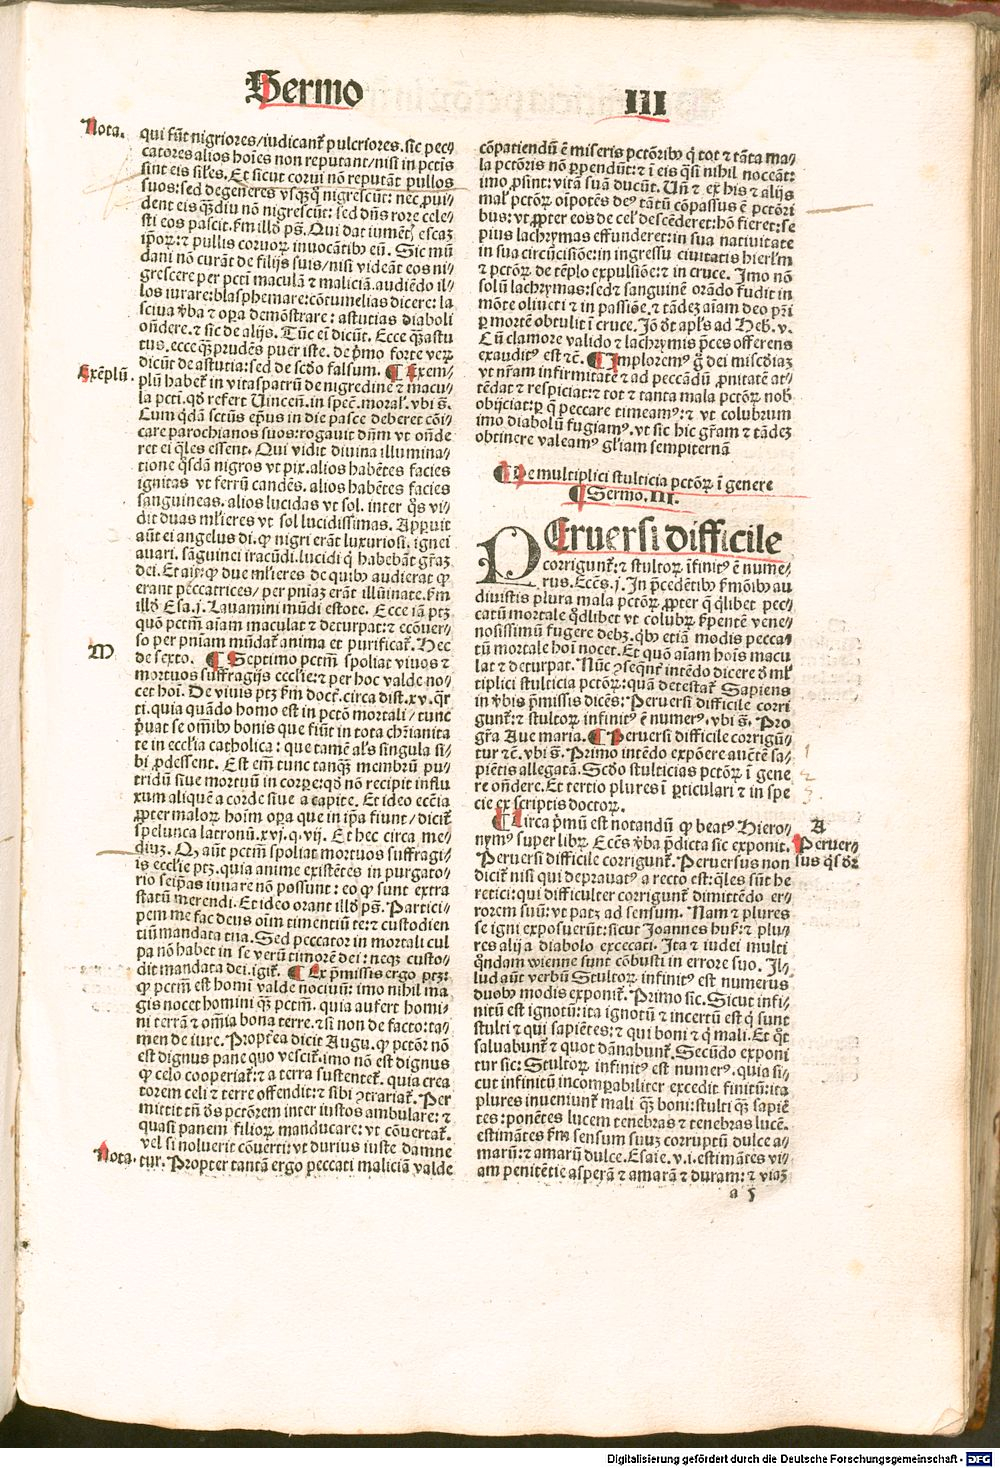 Sermo III
Nota.
qui sūt nigriores/iudicanť pulcriores. sic pec⸗
catores alios hoīes non reputant/nisi in pctīs
sint eis siľes. Et sicut corui nō reputāt pullos
suos: sed degeneres vsqꝫqꝗ nigrescūt: nec ꝓui⸗
dent eis qꝫdiu nō nigrescūt: sed dn̄s rore cele⸗
sti eos pascit. ẜm illḋ ps̄. Qui dat iumētꝭ escaꝫ
ip̄oꝝ: ⁊ pullis coruoꝝ inuocātibꝰ eū. Sic mū
dani nō curāt de filijs suis/nisi videāt eos ni⸗
grescere per pctī maculā ⁊ maliciā. audiēdo il⸗
los iurare: blasphemare: cōtumelias dicere: la
sciua v̄ba ⁊ oꝑa demōstrare: astutias diaboli
oñdere. ⁊ sic de alijs. Tūc eī dicūt. Ecce qꝫastu
tus. ecce qꝫprudēs puer iste. de p̄mo forte veꝝ
dicūt de astutia: sed de scḋo falsum. ¶ Exem⸗
Exēplū.
plū habeť in vitaspatrū de nigredine ⁊ macu⸗
la pctī. qḋ refert Vincen̄. in spec̄. moraľ. vbi s̄.
Cum qḋā sctūs ep̄us in die pasce deberet cōi⸗
care parochianos suos: rogauit dn̄m vt on̄de
ret ei q̄les essent. Qui vidit diuina illumina⸗
tione qḋdā nigros vt pix. alios habētes facies
ignitas vt ferrū candēs. alios habētes facies
sanguineas. alios lucidas vt sol. inter q̄s vi⸗
dit duas mľieres vt sol lucidissimas. Appuit
aūt ei angelus di. ꝙ nigri erāt luxuriosi. ignei
auari. sāguinei iracūdi. lucidi q̇ habebāt gr̄aꝫ
dei. Et ait: ꝙ due mľieres de quibꝰ audierat ꝙ
erant peccatrices/per pn̄iaꝫ erāt illūinate. ẜm
illḋ Esa. j. Lauamini mūdi estote. Ecce iā ptꝫ
quō pctm̄ aīam maculat ⁊ deturpat: ⁊ ecōuer⸗
so per pn̄iam mūdať anima et purificať. Hec
M
de sexto. ¶ Septimo pctm̄ spoliat viuos ⁊
mortuos suffragijs eccľie: ⁊ per hoc valde no⸗
cet hoī. De viuis ptꝫ ẜm doct̄. circa dist. xv. q̄r
ti. quia quādo homo est in pctō mortali/tunc
p̄uat se om̄ibꝰ bonis que fiūt in tota chr̄ianita
te in eccľia catholica: que tamē aľs singula si⸗
bi ꝓdessent. Est em̄ tunc tanqꝫ membrū pu⸗
tridū siue mortuū in corpe: qḋ nō recipit influ
xum aliquē a corde siue a capite. Et ideo ecc̄ia
ꝓpter maloꝝ hoīm oꝑa que in ip̄a fiunt/diciť
spelunca latronū. xvj. q. vij. Et hec circa me⸗
diuꝫ. Qꝫ aūt pctm̄ spoliat mortuos suffragi⸗
is eccľie ptꝫ. quia anime existētes in purgato⸗
rio seip̄as iuuare nō possunt: eo ꝙ sunt extra
statū merendi. Et ideo orant illḋ ps̄. Partici⸗
pem me fac deus oīm timentiū te: ⁊ custodien
tiū mandata tua. Sed peccator in mortali cul
pa nō habet in se verū timorē dei: neqꝫ custo⸗
dit mandata dei. igiť. ¶ Ex p̄missis ergo ptꝫ:
ꝙ pctm̄ est homi valde nociuū: imo nihil ma
gis nocet homini qꝫ pctm̄. quia aufert homi⸗
ni terrā ⁊ om̄ia bona terre. ⁊ si non de facto: ta⸗
men de iure. Propt̄ea dicit Augu. ꝙ pctōr nō
est dignus pane quo vesciť. imo nō est dignus
ꝙ celo cooperiať: ⁊ a terra sustenteť. quia crea
torem celi ⁊ terre offendit: ⁊ sibi ꝯtrariať. Per
mittit tn̄ ds̄ pctōrem inter iustos ambulare: ⁊
quasi panem filioꝝ manducare: vt cōuertať.
vel si noluerit cōuerti: vt durius iuste damne
Nota.
tur. Propter tantā ergo peccati maliciā valde
cōpatiendū ē miseris pctōribꝰ q̇ tot ⁊ tāta ma⸗
la pctōris nō ꝑpendūt: ⁊ ī eis q̄si nihil noceāt:
imo ꝓsint: vitā suā ducūt. Vn̄ ⁊ ex his ⁊ alijs
maľ pctōꝝ oīpotēs deꝰ tātū cōpassus ē pctōri
bus: vt ꝓpter eos de celꝭ descēderet: hō fieret: se
pius lachrymas effunderet: in sua natiuitate
in sua circūcisiōe: in ingressu ciuitatis hierľm
⁊ pctōꝝ de tēplo expulsiōe: ⁊ in cruce. Imo nō
solū lachrymas: sedꝫ sanguinē orādo fudit in
mōte oliueti ⁊ in passiōe. ⁊ tādeꝫ aīam deo pr̄i
ꝑ mortē obtulit ī cruce. Iō ḋt apľs ad Heb. v.
Cū clamore valido ⁊ lachrymis p̄ces offerens
exauditꝰ est ⁊c̄. ¶ Imploremꝰ ḡ dei mīscḋiaꝫ
vt nr̄am infirmitatē ⁊ ad peccādū ꝓnitatē at⸗
tēdat ⁊ respiciat: ⁊ tot ⁊ tanta mala pctōꝝ nobꝭ
obijciat: ꝑ q̄ peccare timeamꝰ: ⁊ vt colubrum
imo diabolū fugiamꝰ. vt sic hic gr̄am ⁊ tādeꝫ
obtinere valeamꝰ gľiam sempiternā
¶ De multiplici stulticia pctōꝝ ī genere
¶ Sermo. III.
PEruersi difficile
corrigunť: ⁊ stultoꝝ īfinitꝰ ē nume⸗
rus. Eccēs. j. In p̄cedētibꝰ ẜmōibꝰ au
diuistis plura mala pctōꝝ ꝓpter q̄ q̇libet pec⸗
catū mortale qḋlibet vt colubꝝ ẜpente vene⸗
nosissimū fugere debꝫ. qbꝰ etiā modis pecca⸗
tū mortale hoī nocet. Et quō aīam hoīs macu
lat ⁊ deturpat. Nūc ꝯseqn̄ť intēdo dicere ḋ mľ
tiplici stulticia pctōꝝ: quā detestať Sapiens
in v̄bis p̄missis dicēs: Peruersi difficile corri
gunť: ⁊ stultoꝝ infinitꝰ ē numerꝰ. vbi s̄. Pro
gr̄a Aue maria. ¶ Peruersi difficile corrigū⸗
tur ⁊c̄. vbi s̄. Primo intēdo expōere auctē sa⸗
piētis allegatā. Scḋo stulticias pctōꝝ ī gene
re on̄dere. Et tertio plures ī ꝑticulari ⁊ in spe
cie ex scriptis doctoꝝ.
¶ Circa p̄mū est notandū ꝙ beatꝰ Hiero⸗
A
nymꝰ super libꝝ. Eccēs v̄ba p̄dicta sic exponit.
Peruer⸗
Peruersi difficile corrigunť. Peruersus non
sus q̇s ḋr
diciť nisi qui deprauatꝰ a recto est: q̄les sūt he
retici: qui difficulter corrigunť dimittēdo er⸗
rorem suū: vt patꝫ ad sensum. Nam ⁊ plures
se igni exposuerūt: sicut Joannes huß: ⁊ plu⸗
res alij a diabolo excecati. Ita ⁊ iudei multi
q̄ndam wienne sunt cōbusti in errore suo. Il⸗
lud aūt verbū Stultoꝝ infinitꝰ est numerus
duobꝰ modis exponiť. Primo sic. Sicut infi⸗
nitū est ignotū: ita ignotū ⁊ incertū est q̇ sunt
stulti ⁊ qui sapiētes: ⁊ qui boni ⁊ q̇ mali. Et q̇t
saluabunť ⁊ quot dānabunť. Secūdo exponi
tur sic: Stultoꝝ infinitꝰ est numerꝰ. quia si⸗
cut infinitū incompabiliter excedit finitū: ita
plures inueniunť mali qꝫ boni: stulti qꝫ sapiē
tes: ponētes lucem tenebras ⁊ tenebras lucē.
estimātes ẜm sensum suuꝫ corruptū dulce a⸗
marū: ⁊ amarū dulce. Esaie. v. i. estimātes vi⸗
am penitētie asperā ⁊ amarā ⁊ duram: ⁊ viaꝫ
a 5
1
2
3.
Digitalisierung gefördert durch die Deutsche Forschungsgemeinschaft - DFG